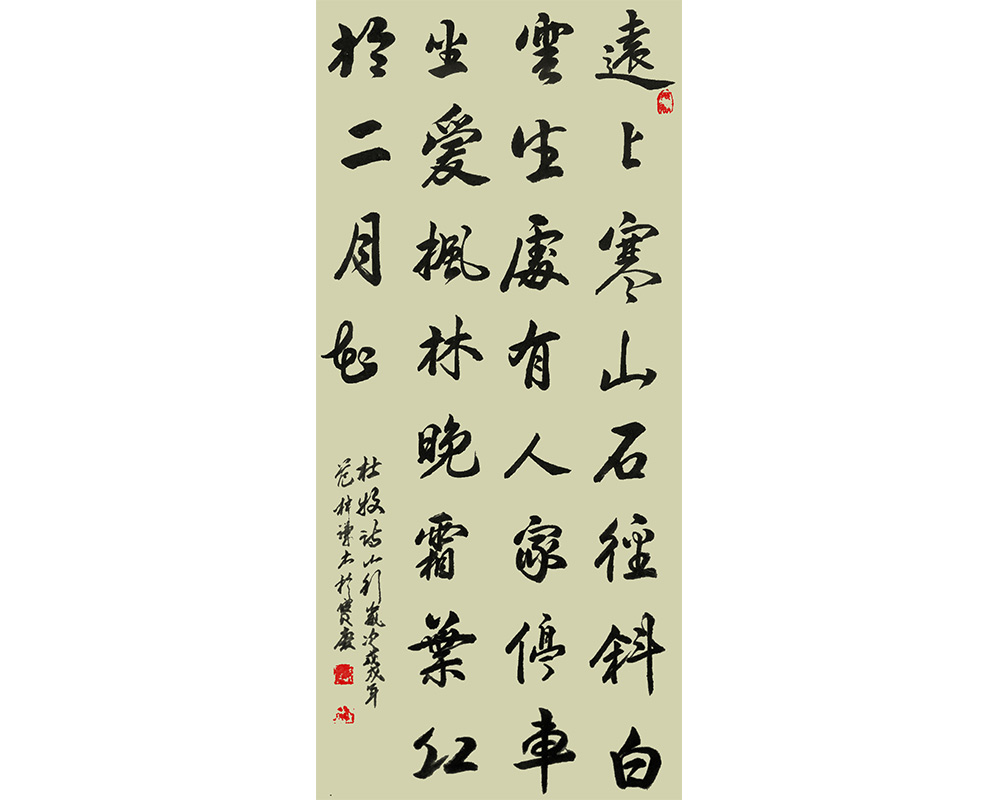 遠上寒山石徑斜白
雲生處有人家停車
坐愛楓林晚霜葉紅
於二月花
杜牧诗山行歲次年
於寶慶